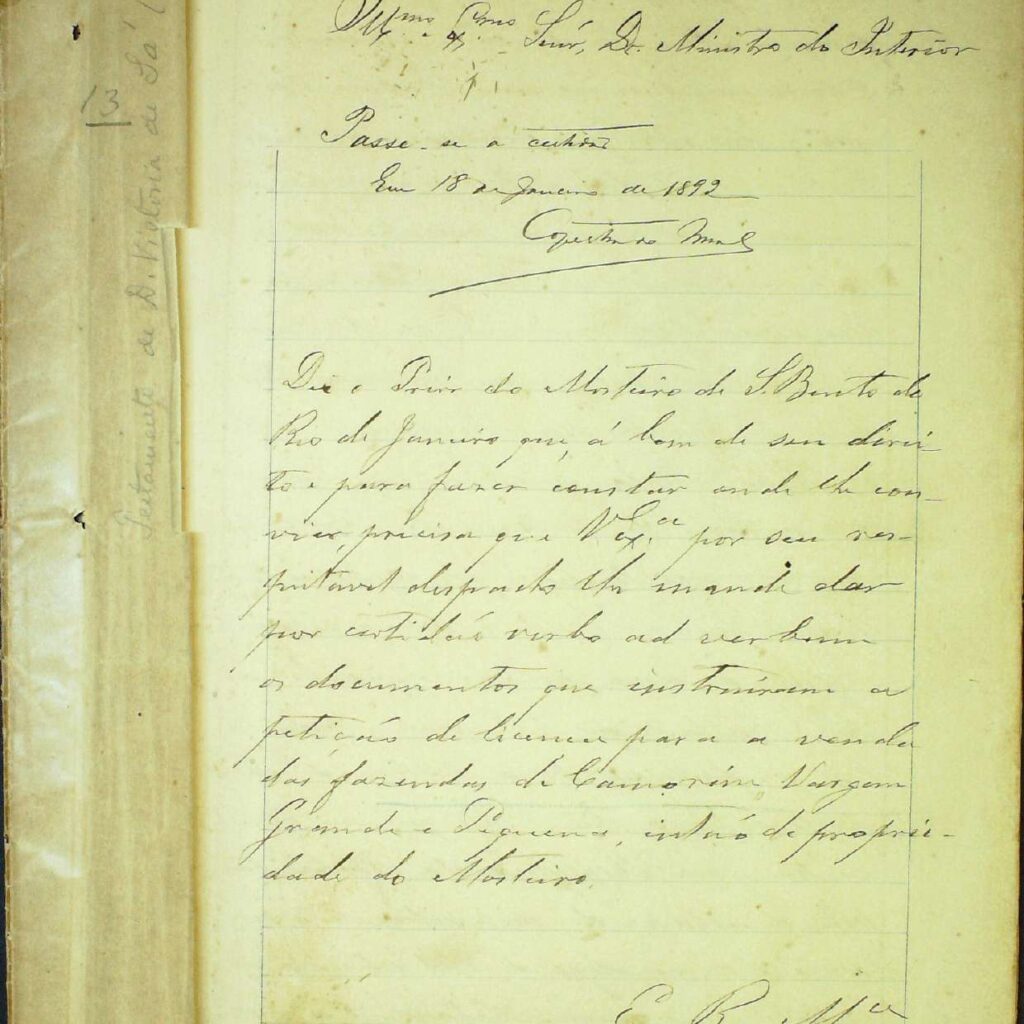 Illmo. e Exmo. Senr. Dr. Ministro do Interior
Passe-se a certidão
Em 18 de Janeiro de 1892
13
Testamento de D. Victoria de Sá
Diz o Prior do Mosteiro de S. Bento do
Rio de Janeiro que, á bem de seu direi-
to e para fazer constar onde lhe con-
vier, precisa que V. Exca. por seu res-
peitavel despacho lhe mande dar
por certidão verbo ad verbum
os documentos que instruiram a
petição de licença para a venda
das fazendas de Camorim, Vargem
Grande e Pequena, então de proprie-
dade do Mosteiro.
E. R. Mce